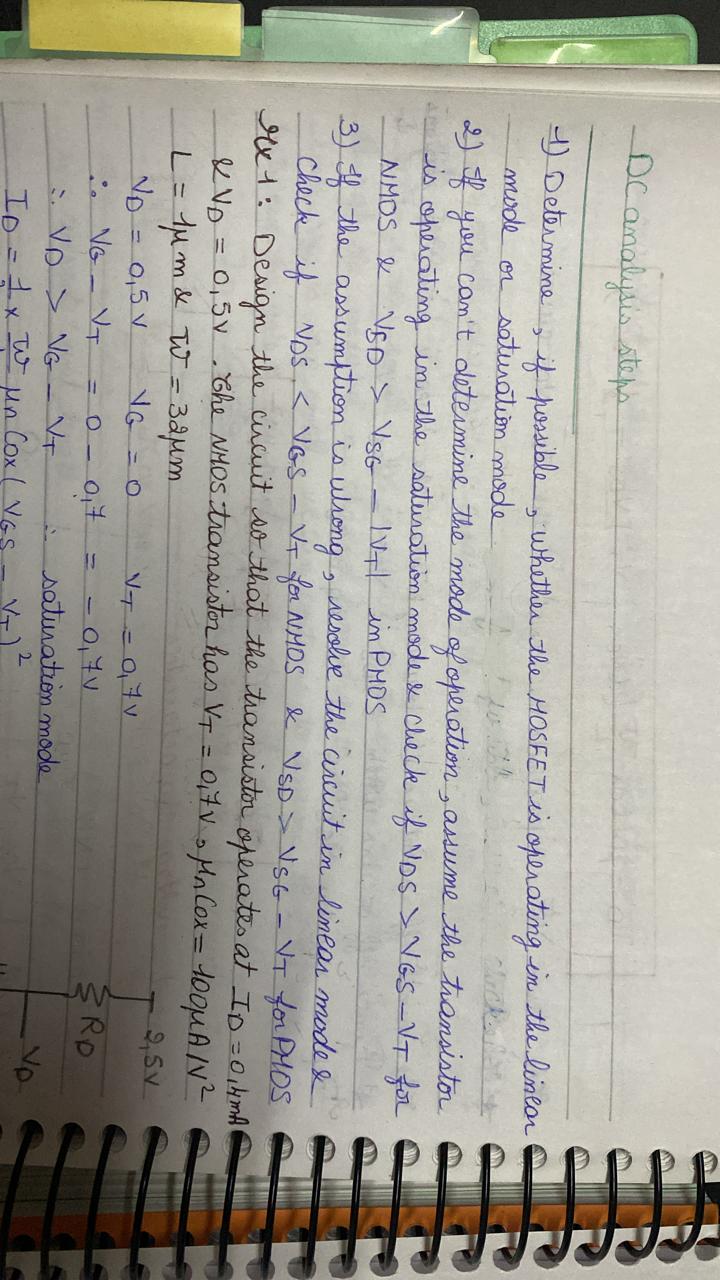 DC analysis steps
1) Determine, if possible, whether the MOSFET is operating in the linear
mode or saturation mode
2) If you can't determine the mode of operation, assume the transistor
is operating in the saturation mode & check if VDS > VGS - VT for
NMOS & VSD > VSG - |VT| in PMOS
3) If the assumption is wrong, resolve the circuit in linear mode &
check if VDS < VGS - VT for NMOS & VSD > VSG - VT for PMOS
Ex 1: Design the circuit so that the transistor operates at ID = 0,4mA
& VD = 0,5V. The NMOS transistor has VT = 0,7V, μnCox = 100μA/V²
L = 1μm & W = 32μm
VD = 0,5V VG = 0 VT = 0,7V
∴ VG - VT = 0 - 0,7 = - 0,7V
∴ VD > VG - VT ∴ saturation mode
2,5V
RD
VD
ID = 1/2 x W/L μnCox (VGS - VT)²